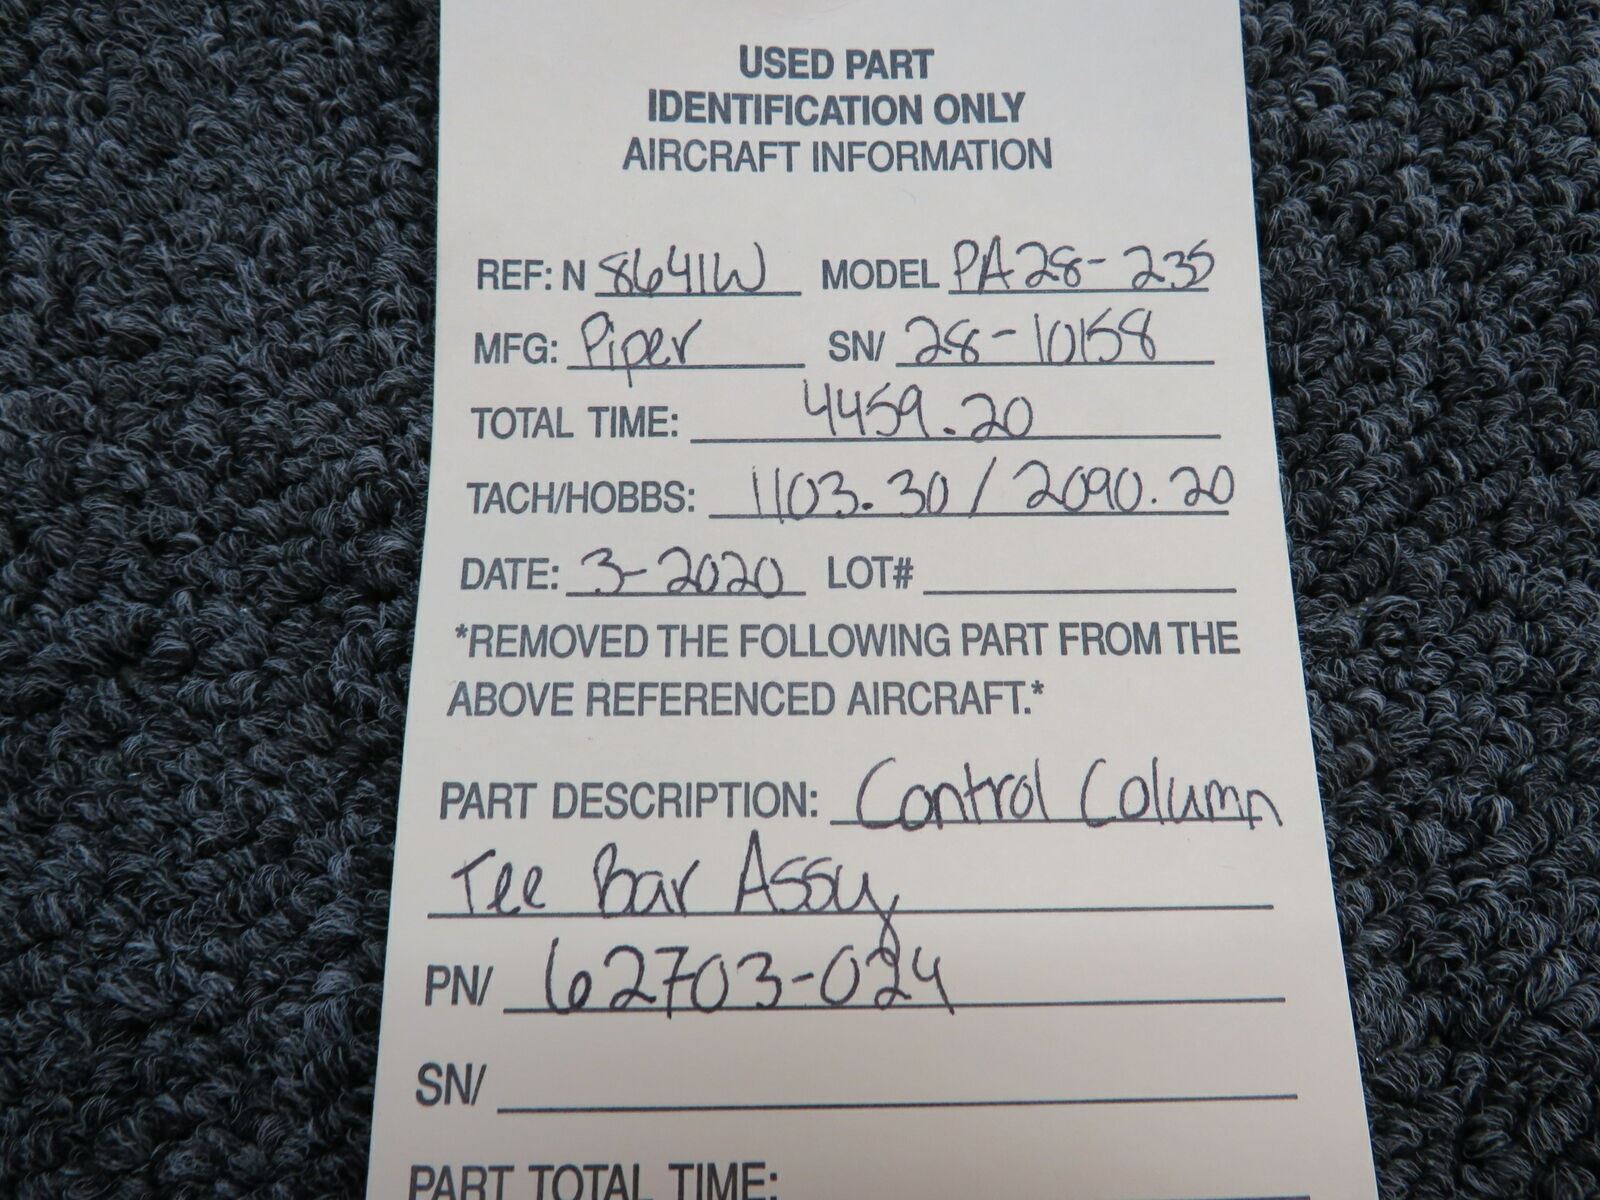 USED PART
IDENTIFICATION ONLY
AIRCRAFT INFORMATION
REF: N 8641W MODEL PA28-235
MFG: Piper SN/ 28-10158
TOTAL TIME: 4459.20
TACH/HOBBS: 1103.30 / 2090.20
DATE: 3-2020 LOT#
*REMOVED THE FOLLOWING PART FROM THE
ABOVE REFERENCED AIRCRAFT.*
PART DESCRIPTION: Control Column
Tee Bar Assy
PN/ 62703-024
SN/
PART TOTAL TIME: